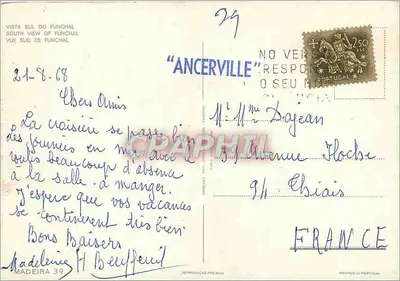 VISTA SUL DO FUNCHAL
SOUTH VIEW OF FUNCHAL
VUE SUD DE FUNCHAL
29
"ANCERVILLE"
NO VER
RESPO
O SEU
2$50
PORTUGAL
21-8-68
Chers Amis
La croisière se passe bien
Les journées en mer avec
roulis beaucoup d'absence
à la salle à manger.
J'espère que vos vacances
se continuent très bien
Bons Baisers
Madeleine H
MADEIRA 39
CPAPHIL
Mr Mme Dajean
39 Avenue Hoche
94 Thiais
FRANCE
PRINTED IN PORTUGAL